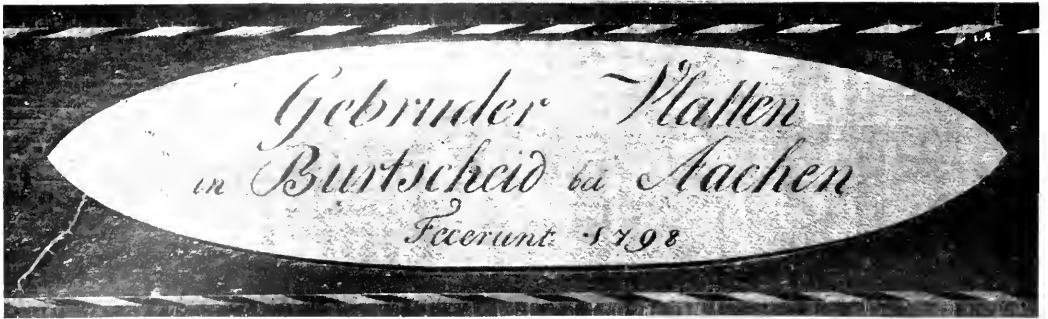 Gebruder Vlatten
in Burtscheid bei Aachen
Fecerunt 1798